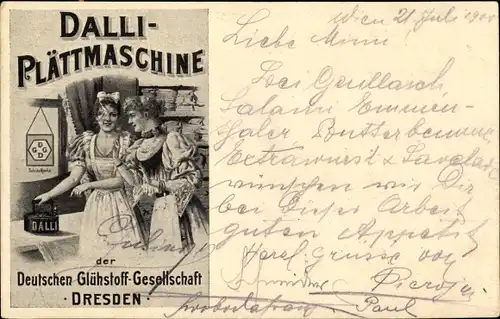 DALLI-
PLÄTTMASCHINE
DALLI
der
Deutschen Glühstoff-Gesellschaft
DRESDEN
Wien 21. Juli 1900
Liebe Mimi
Bei Gullasch
Salami Emmen-
thaler Butterbemme
Extrawurst &
wünschen wir Dir
bei Dieser Arbeit
guten Appetit
Herzl. Grüsse von
Paul